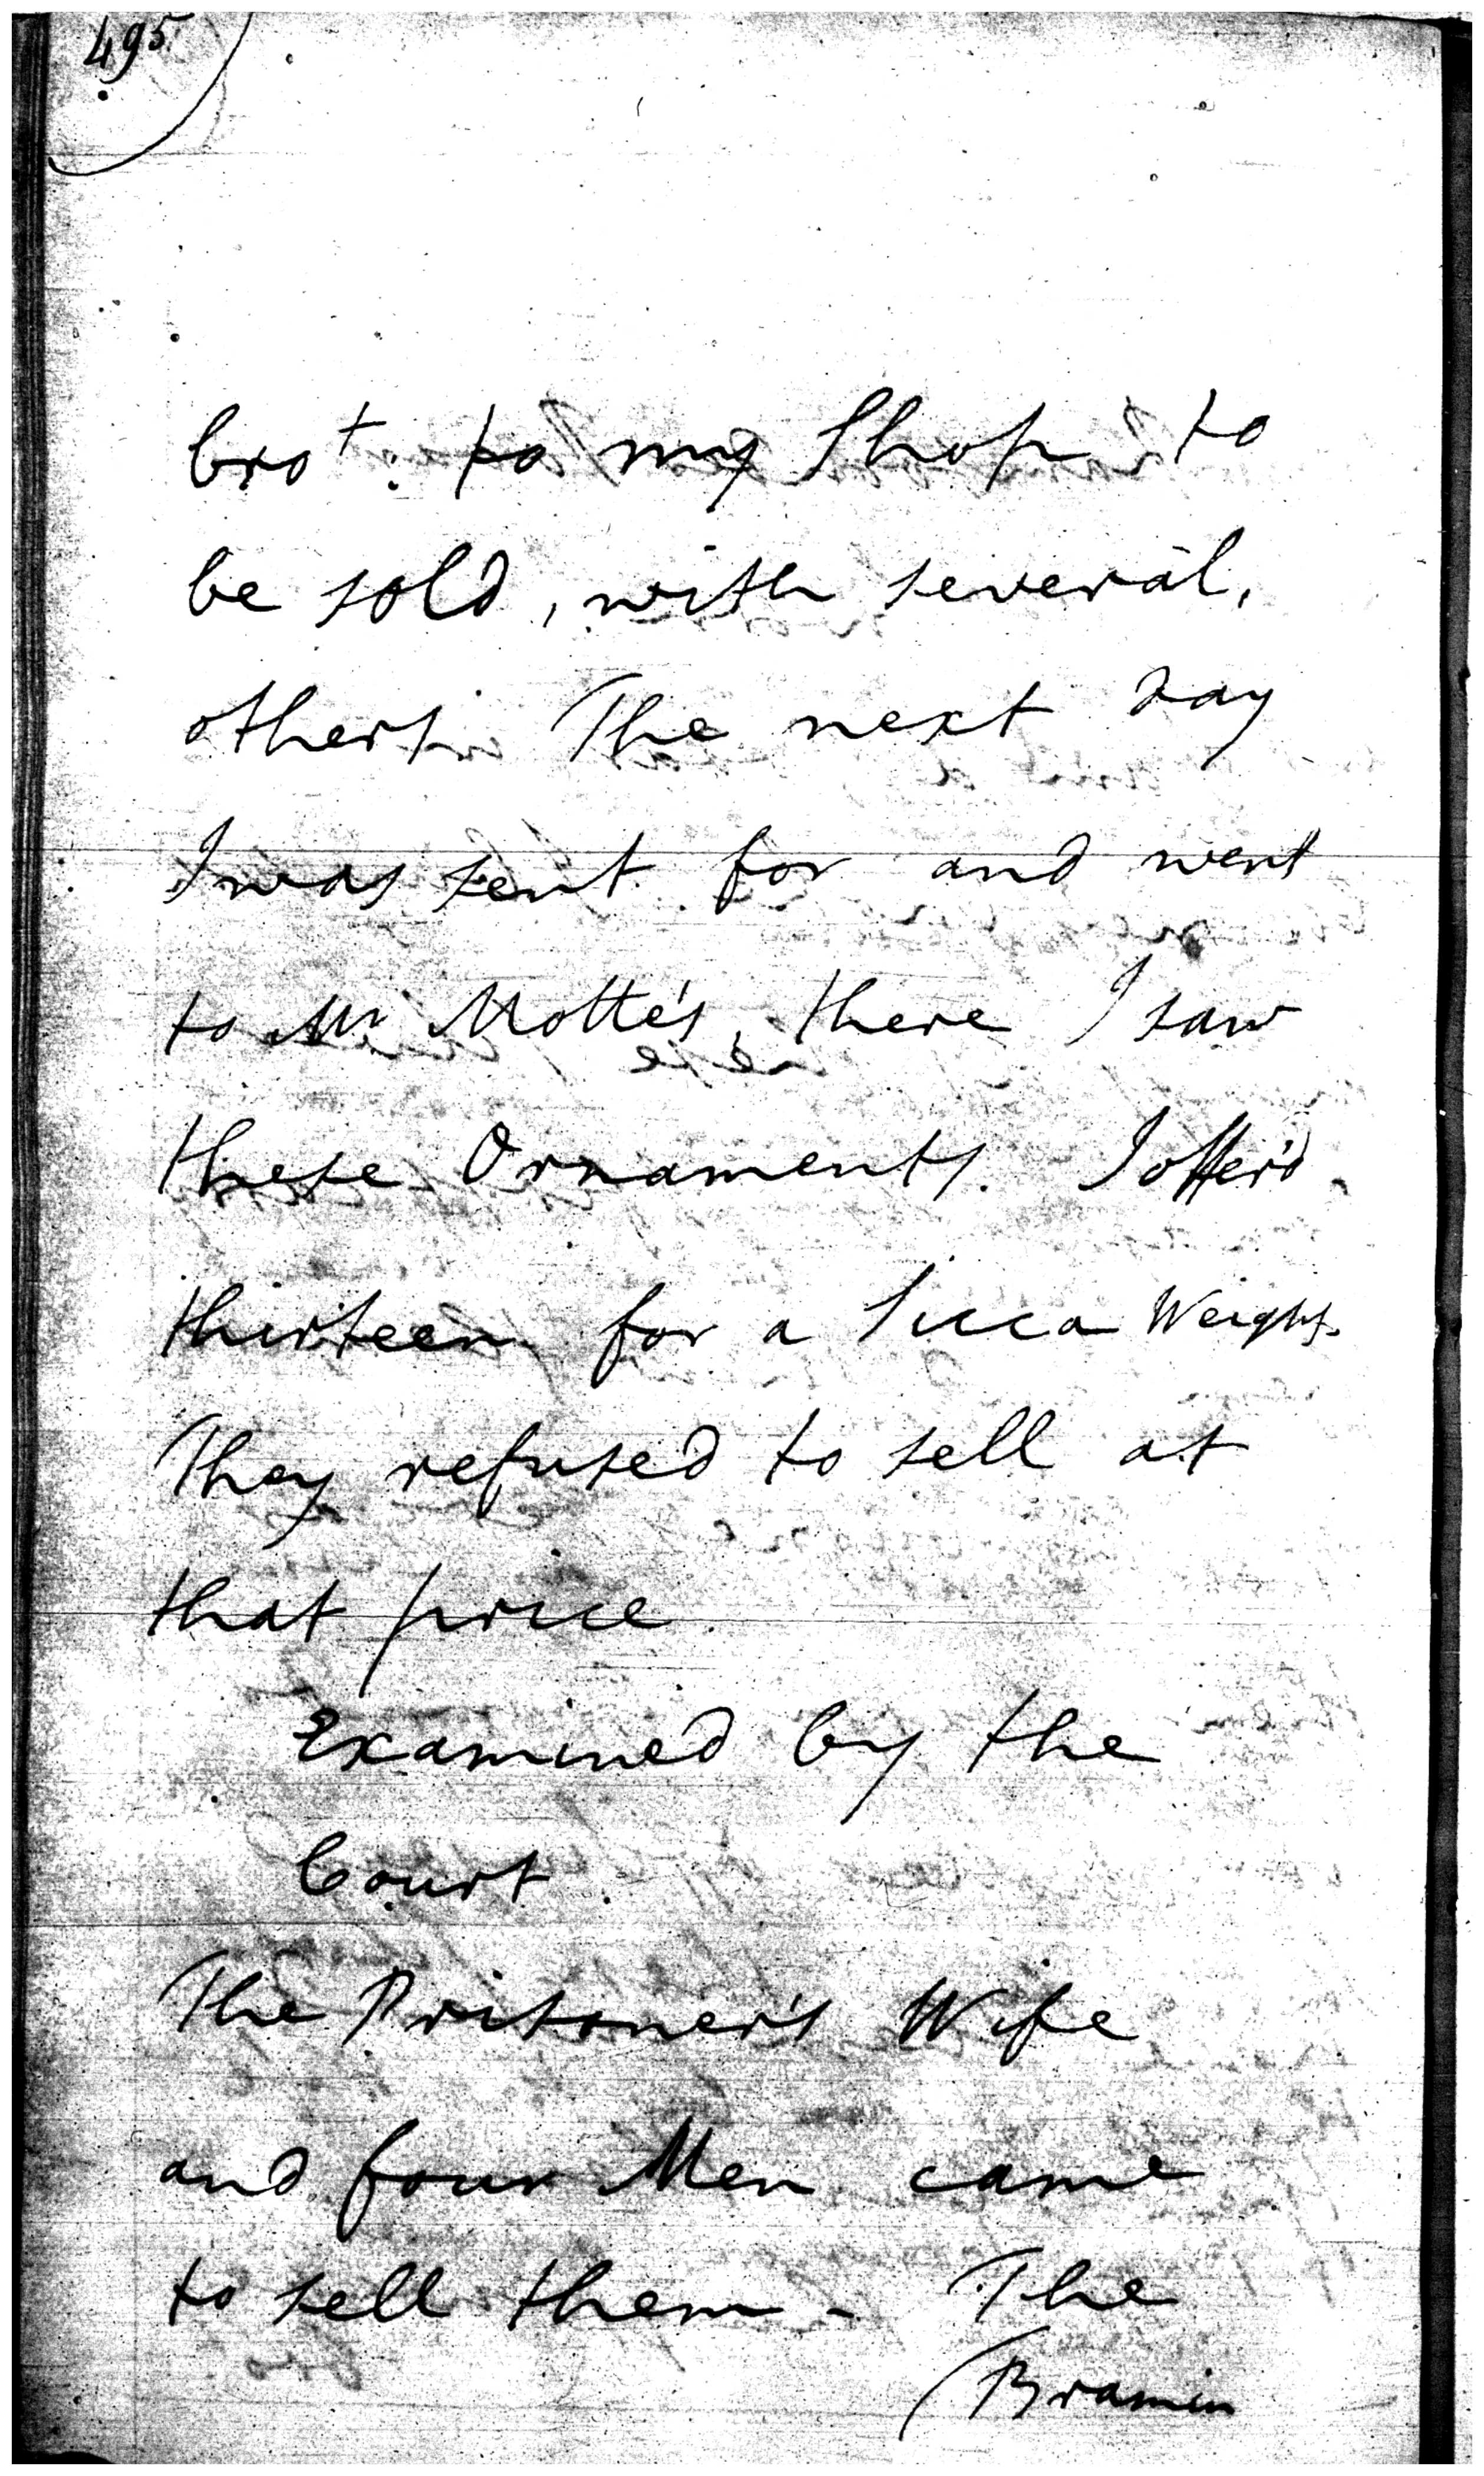 495
brot. to my Shop to
be sold, with several,
others. The next day
I was sent for and went
to Mr Motte's, there I saw
these Ornaments. I offer'd
thirteen for a Sicca Weight.
They refused to sell at
that price.
Examined by the
Court.
The Prisoner's Wife
and four Men came
to sell them - The
Bramin